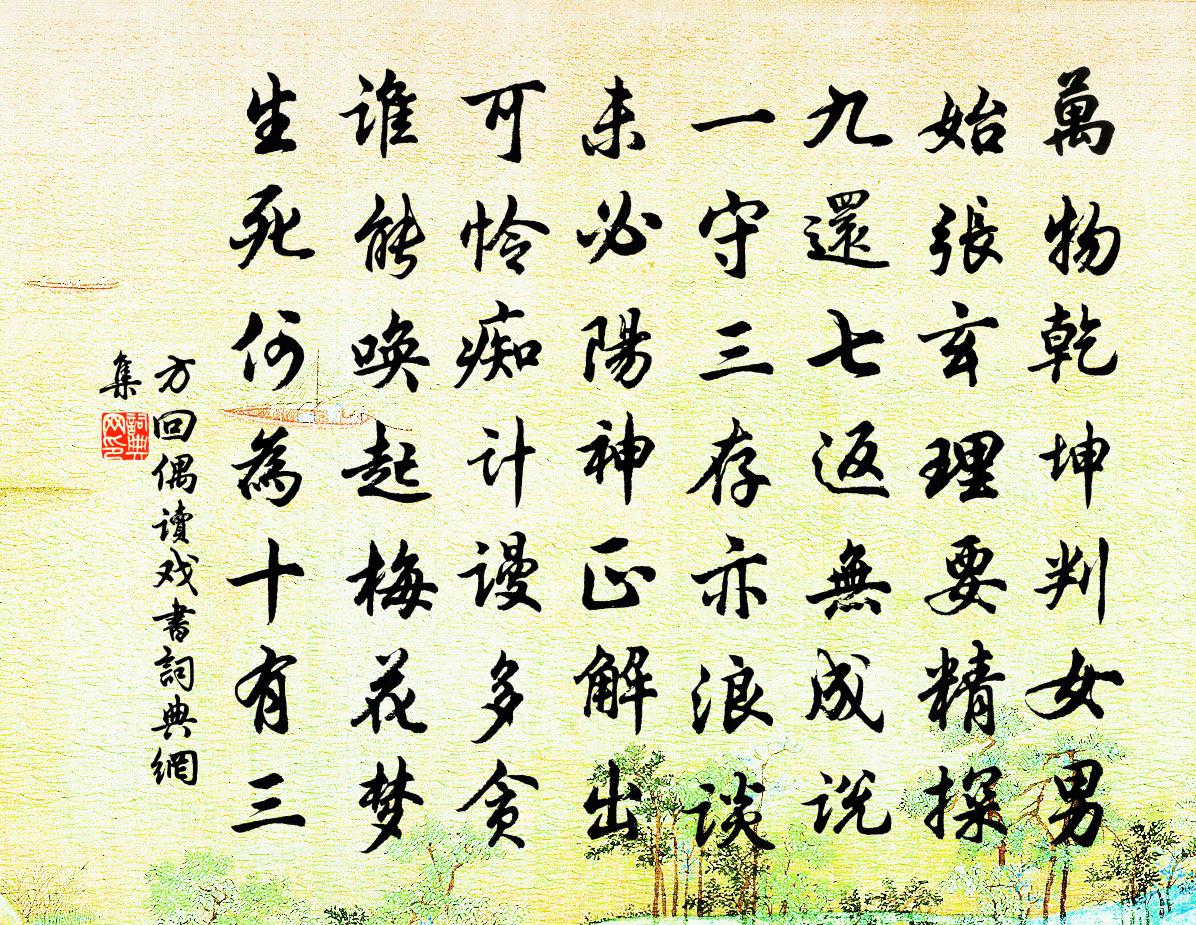 萬物乾坤判女男
始張玄理要精探
九還七返無成说
一守三存亦浪谈
未必陽神正解出
可怜痴计谩多贪
谁能唤起梅花梦
生死何為十有三
方回偶讀戏書詞典網
集
詞典网印